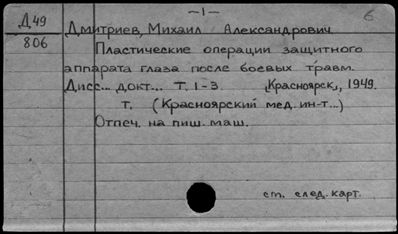 —1—
6
Д 49
806
Дмитриев, Михаил Александрович.
Пластические операции защитного
аппарата глаза после боевых травм.
Дисс... докт... Т. 1-3. Красноярск, 1949.
т. (Красноярский мед. ин-т...)
Отпеч. на пиш. маш.
см. след. карт.